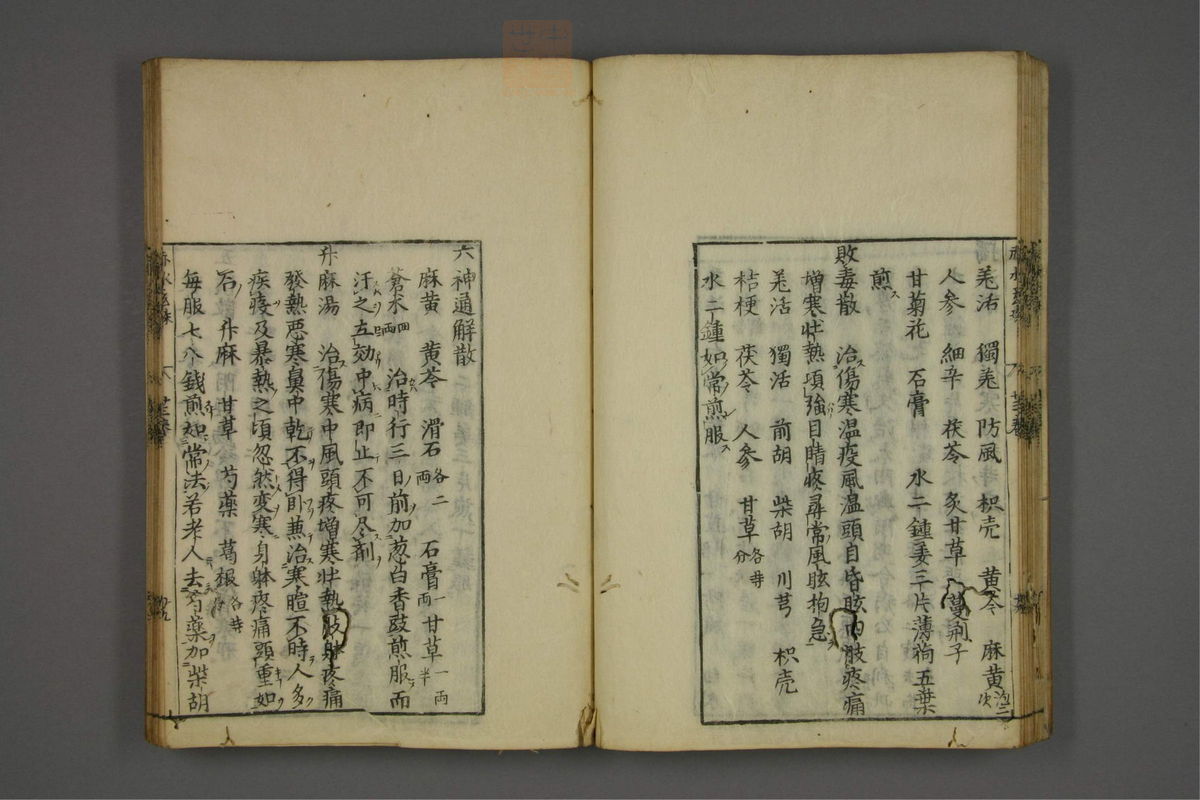 羗活 獨羗 防風 枳壳 黄芩 麻黄
人参 細辛 茯苓 炙甘草 蔓荊子
甘菊花 石膏 水二鍾姜三片薄荷五葉
煎ス
敗毒散 治傷寒温疫風温頭目昏眩四肢疼痛
増寒壮熱項強目睛疼尋常風眩拘急
羗活 獨活 前胡 柴胡 川芎 枳壳
桔梗 茯苓 人参 甘草各等分
水二鍾如常煎服ス
六神通解散
麻黄 黄芩 滑石各二両 石膏一両 甘草一両半
蒼朮四両 治時行三日前加葱白香豉煎服而
汗之立効中病即止不可尽剤
升麻湯 治傷寒中風頭疼増寒壮熱肢躰疼痛
發熱悪寒鼻中乾不得卧兼治寒暄不時人多
疾疫及暴熱之頃忽然变寒身躰疼痛頭重如
石 升麻 甘草 芍藥 葛根各等分
毎服七八錢煎如常法若老人去芍藥加柴胡